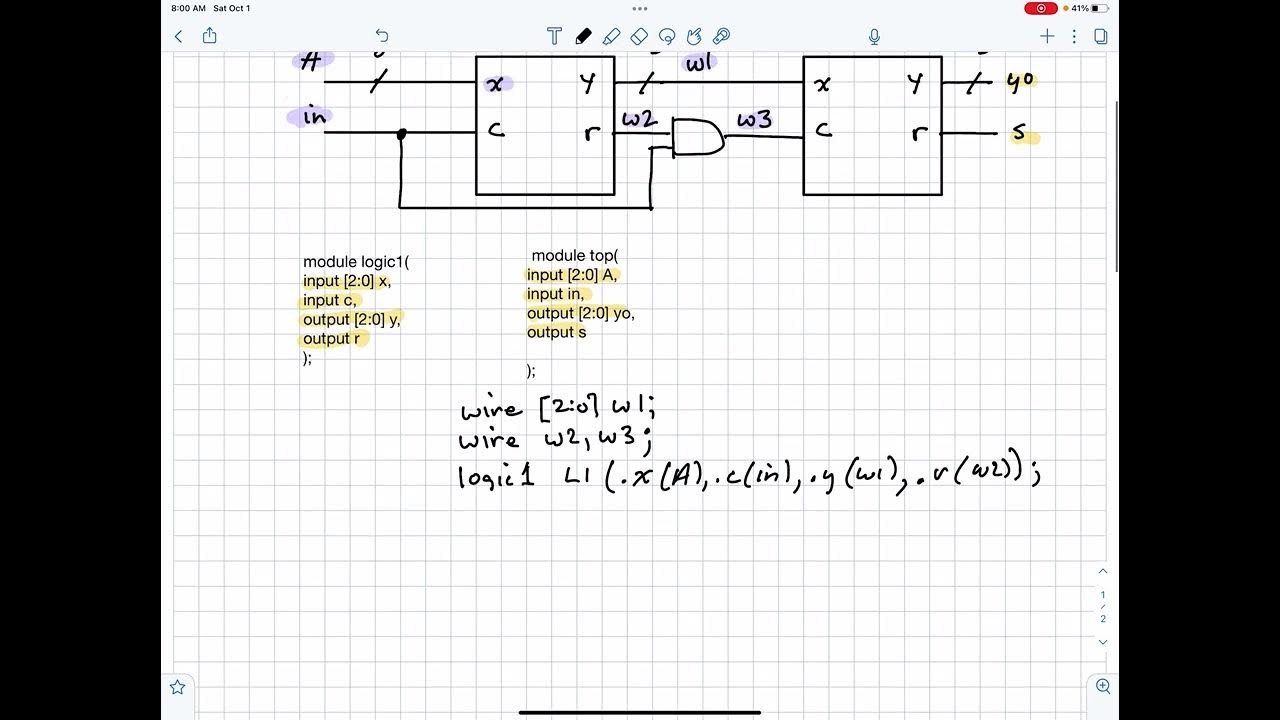 8:00 AM Sat Oct 1
41%
w1
x y x y yo
in
c r w2 w3 c r s
module logic1(
input [2:0] x,
input c,
output [2:0] y,
output r
);
module top(
input [2:0] A,
input in,
output [2:0] yo,
output s
);
wire [2:0] w1;
wire w2, w3;
logic1 L1 (.x(A), .c(in), .y(w1), .r(w2));
1
/
2